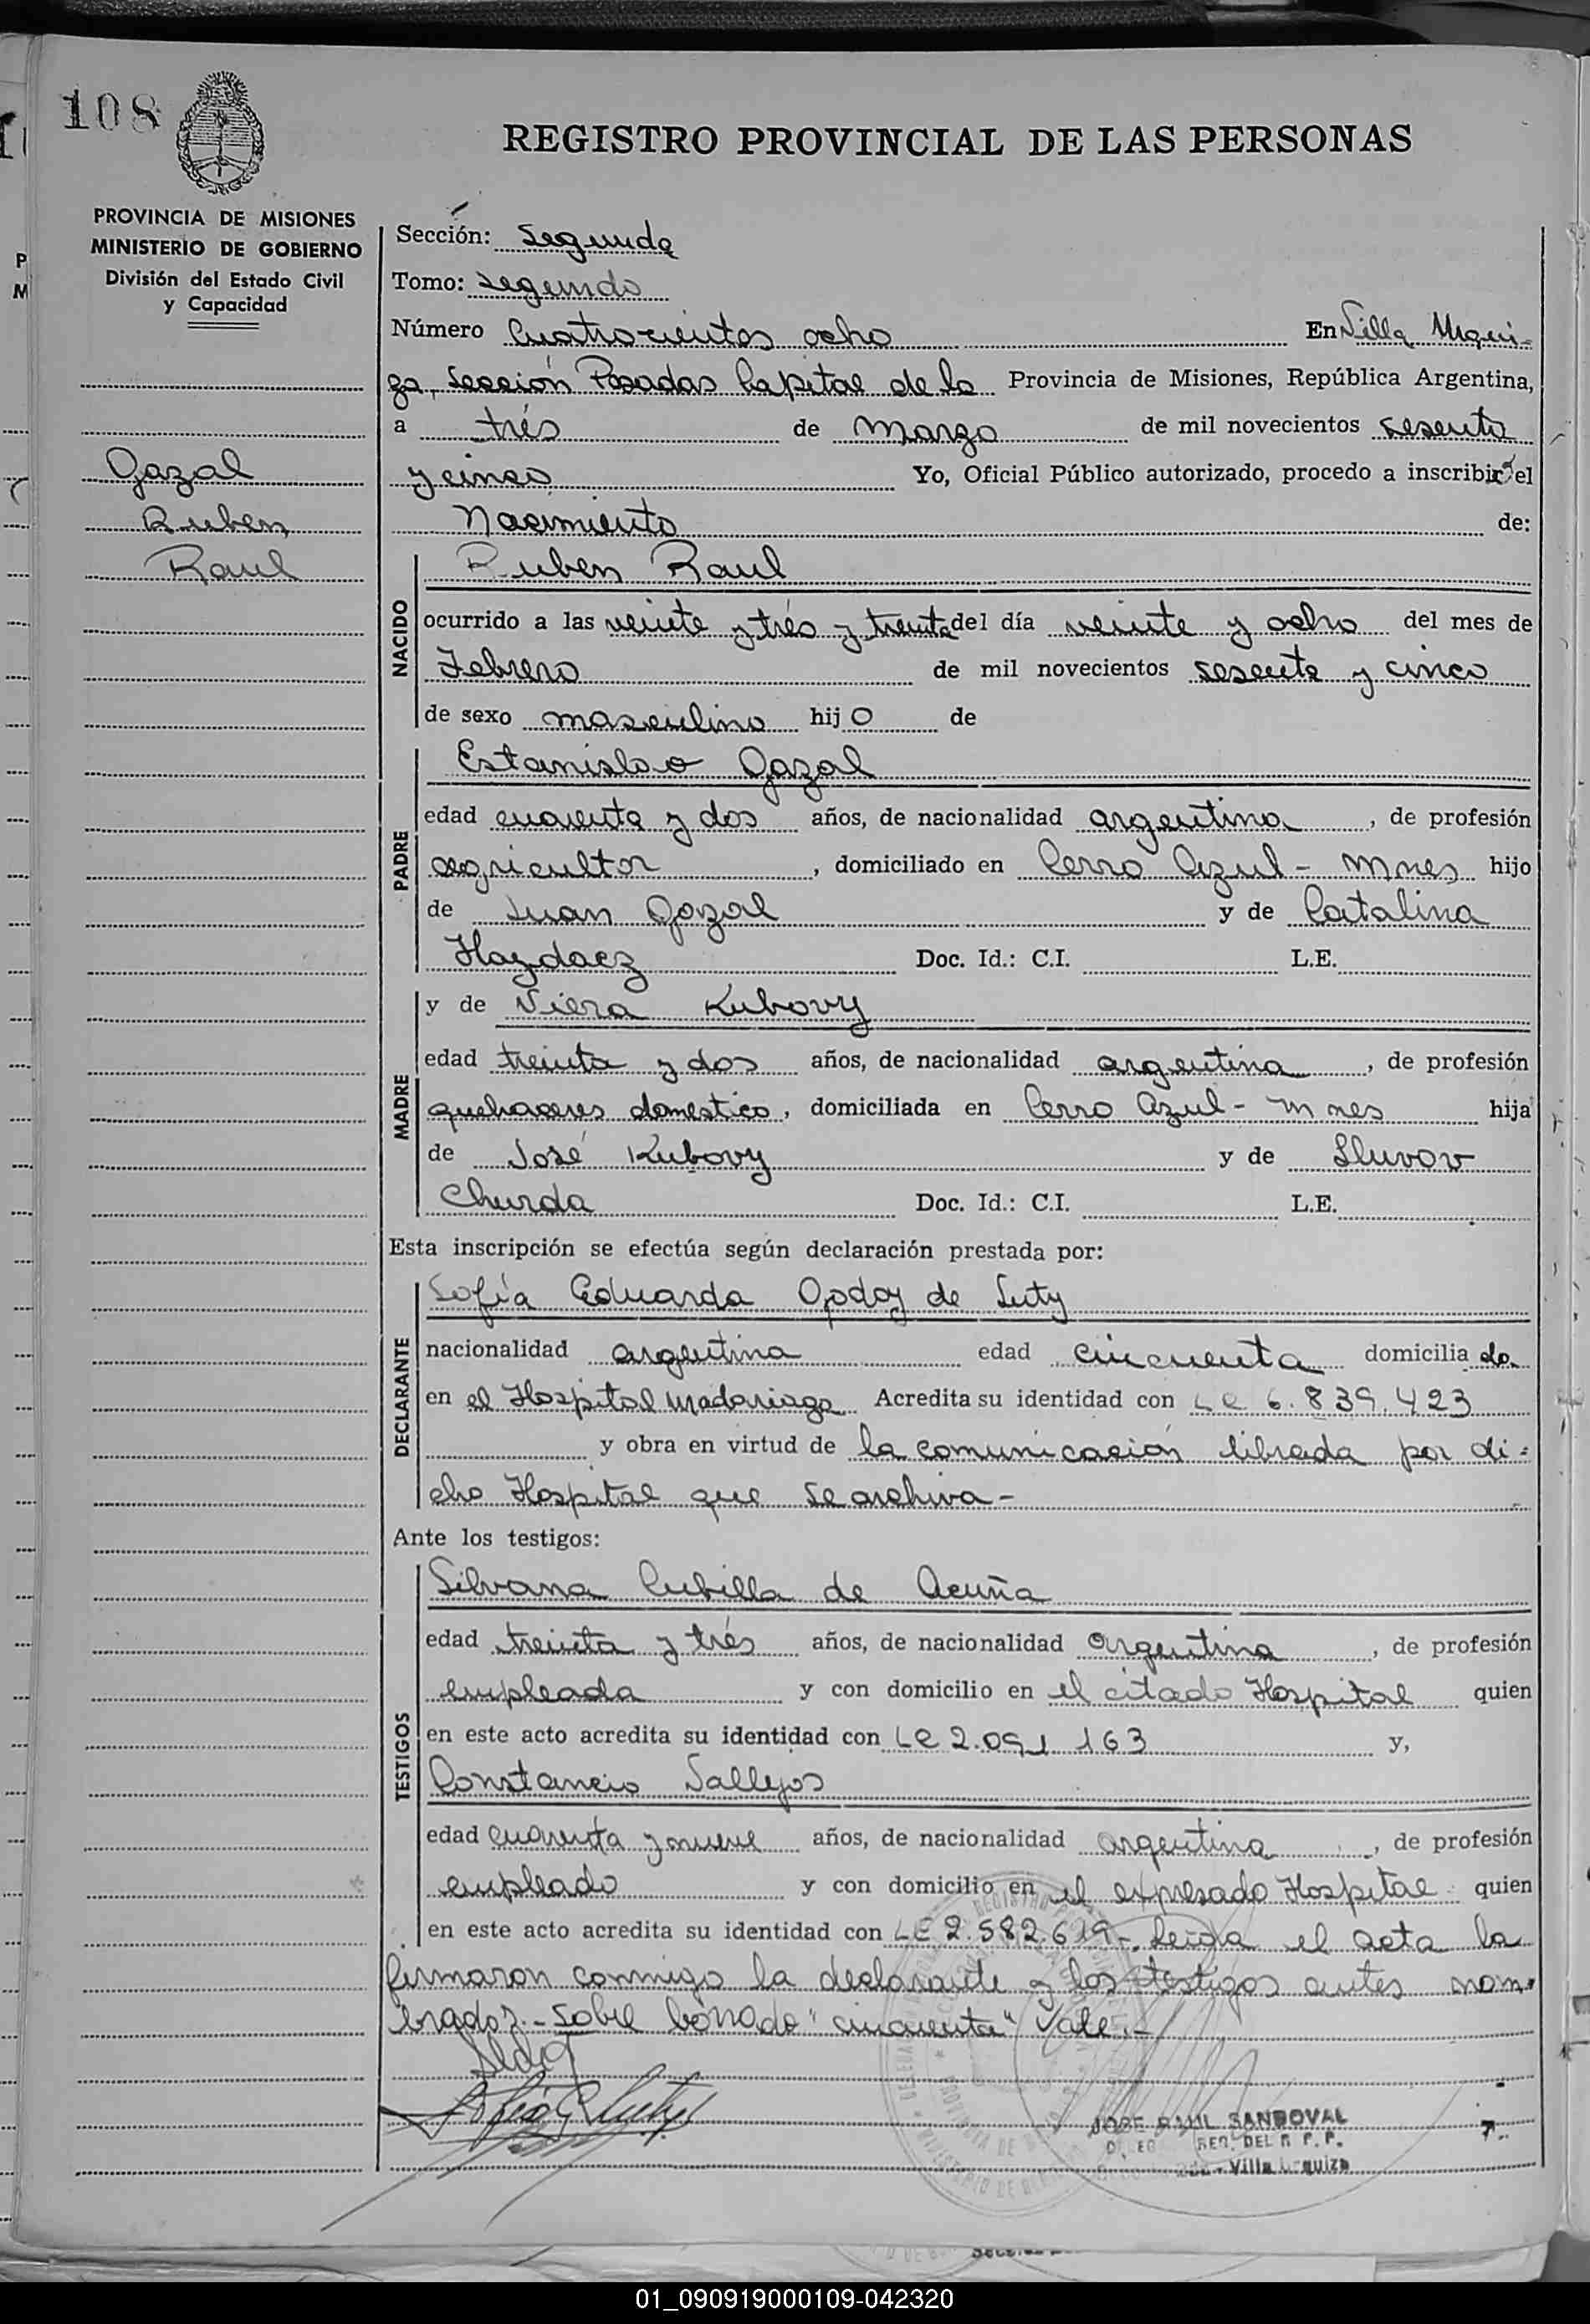 108
REGISTRO PROVINCIAL DE LAS PERSONAS
PROVINCIA DE MISIONES
MINISTERIO DE GOBIERNO
División del Estado Civil
y Capacidad
Gazal
Ruben
Raul
Sección: Segunda
Tomo: Segundo
Número Cuatrocientos ocho En Villa Urqui-
za, Sección Posadas Capital de la Provincia de Misiones, República Argentina,
a trés de Marzo de mil novecientos sesenta
y cinco Yo, Oficial Público autorizado, procedo a inscribir el
Nacimiento de:
NACIDO
Ruben Raul
ocurrido a las veinte y trés y treinta del día veinte y ocho del mes de
Febrero de mil novecientos sesenta y cinco
de sexo masculino hijo de
PADRE
Estanislao Gazal
edad cuarenta y dos años, de nacionalidad argentina, de profesión
agricultor, domiciliado en Cerro Azul - Mnes hijo
de Juan Gazal y de Catalina
Haydacz Doc. Id.: C.I. L.E.
MADRE
y de Viera Kubovy
edad treinta y dos años, de nacionalidad argentina, de profesión
quehaceres domestico, domiciliada en Cerro Azul - Mnes hija
de José Kubovy y de Lluvov
Churda Doc. Id.: C.I. L.E.
Esta inscripción se efectúa según declaración prestada por:
DECLARANTE
Sofía Eduarda Godoy de Luty
nacionalidad argentina edad cincuenta domiciliada
en el Hospital Madariaga Acredita su identidad con LC 6.839.423
y obra en virtud de la comunicación librada por di-
cho Hospital que se archiva-
Ante los testigos:
TESTIGOS
Silvana Cubilla de Acuña
edad treinta y trés años, de nacionalidad argentina, de profesión
empleada y con domicilio en el citado Hospital quien
en este acto acredita su identidad con LC 2.091 163 y,
Constancio Vallejos
edad cuarenta y nueve años, de nacionalidad argentina, de profesión
empleado y con domicilio en el expresado Hospital quien
en este acto acredita su identidad con LE 2.582.619-. Leida el acta la
firmaron conmigo la declarante y los testigos antes nom-
brados.- Sobre borrado "cincuenta" Vale.-
JOSE RAUL SANDOVAL
Villa Urquiza
01_090919000109-042320